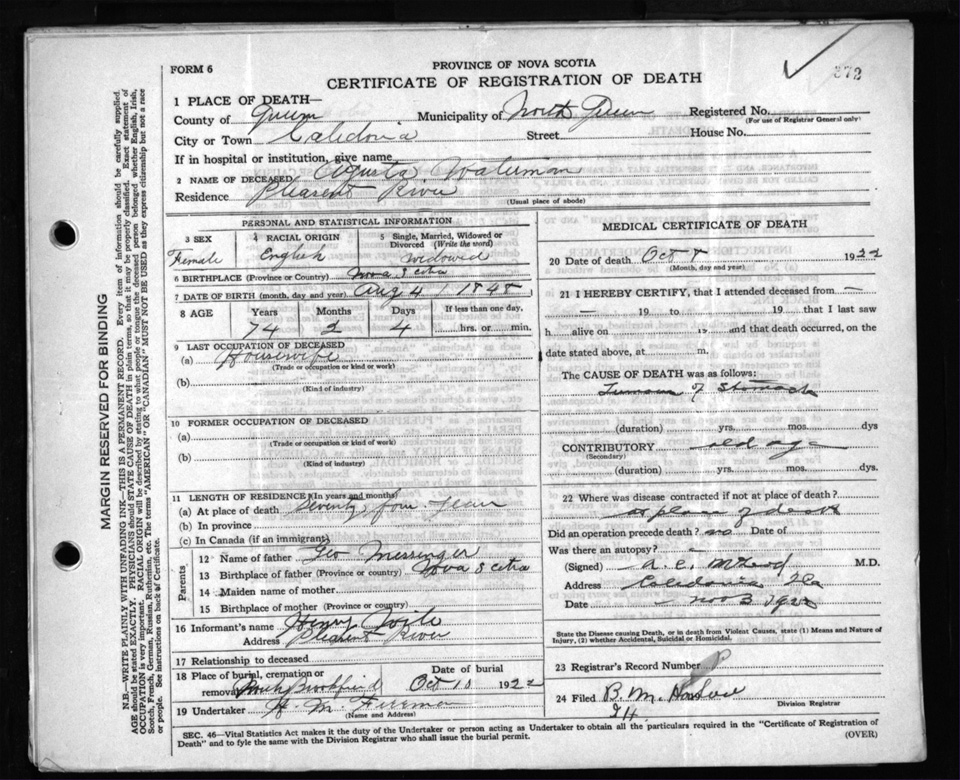 FORM 6
PROVINCE OF NOVA SCOTIA
CERTIFICATE OF REGISTRATION OF DEATH
372
1 PLACE OF DEATH—
County of Queens Municipality of North Queens Registered No.
(For use of Registrar General only)
City or Town Caledonia Street House No.
If in hospital or institution, give name
2 NAME OF DECEASED Augusta Waterman
Residence Pleasent River
(Usual place of abode)
PERSONAL AND STATISTICAL INFORMATION
3 SEX Female
4 RACIAL ORIGIN English
5 Single, Married, Widowed or Divorced (Write the word) widowed
6 BIRTHPLACE (Province or Country) Nova Scotia
7 DATE OF BIRTH (month, day and year) Aug 4 1848
8 AGE Years 74 Months 2 Days 4 If less than one day, hrs. or min.
9 LAST OCCUPATION OF DECEASED
(a) Housewife
(Trade or occupation or kind or work)
(b)
(Kind of industry)
10 FORMER OCCUPATION OF DECEASED
(a)
(Trade or occupation or kind of work)
(b)
(Kind of industry)
11 LENGTH OF RESIDENCE (In years and months)
(a) At place of death Seventy four years
(b) In province
(c) In Canada (if an immigrant)
Parents
12 Name of father Geo Messinger
13 Birthplace of father (Province or country) Nova Scotia
14 Maiden name of mother
15 Birthplace of mother (Province or country)
16 Informant's name Henry
Address Pleasent River
17 Relationship to deceased
18 Place of burial, cremation or removal North Brookfield
Date of burial Oct 10 1922
19 Undertaker H. M. Freeman
(Name and Address)
MEDICAL CERTIFICATE OF DEATH
20 Date of death Oct 8 1922
(Month, day and year)
21 I HEREBY CERTIFY, that I attended deceased from —
— 19 to 19 that I last saw
h alive on 19 and that death occurred, on
date stated above, at m.
The CAUSE OF DEATH was as follows:
Tumour of Stomach
(duration) yrs. mos. dys
CONTRIBUTORY old age
(Secondary)
(duration) yrs. mos. dys.
22 Where was disease contracted if not at place of death?
at place of death
Did an operation precede death? no Date of
Was there an autopsy? –
(Signed) M.D.
Address Caledonia
Date Nov 3 1922
State the Disease causing Death, or in death from Violent Causes, state (1) Means and Nature of
Injury, (2) whether Accidental, Suicidal or Homicidal.
23 Registrar's Record Number
24 Filed B. M.
Division Registrar
SEC. 46—Vital Statistics Act makes it the duty of the Undertaker or person acting as Undertaker to obtain all the particulars required in the "Certificate of Registration of
Death" and to fyle the same with the Division Registrar who shall issue the burial permit.
(OVER)
MARGIN RESERVED FOR BINDING
N.B.—WRITE PLAINLY WITH UNFADING INK—THIS IS A PERMANENT RECORD. Every item of information should be carefully supplied.
AGE should be stated EXACTLY. PHYSICIANS should STATE CAUSE OF DEATH in plain terms, so that it may be properly classified. Exact statement of
OCCUPATION is very important. RACIAL ORIGIN will be described by stating to what people or tongue the deceased person belonged whether English, Irish,
Scotch, French, German, Russian, Ruthenian, etc. The terms "AMERICAN" OR "CANADIAN" MUST NOT BE USED as they express citizenship but not a race
or people. See instructions on back of Certificate.